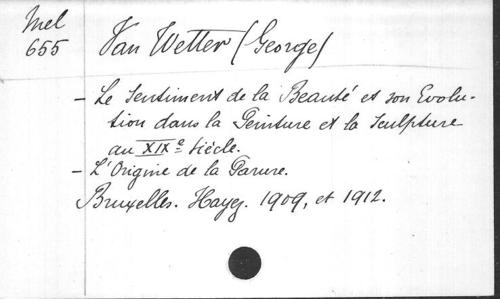 Mel
655
Van Wetter (George)
- Le Sentiment de la Beauté et son Evolu-
tion dans la Peinture et la Sculpture
au XIXe Siècle.
- L'Origine de la Parure.
Bruxelles. Hayez. 1909, et 1912.